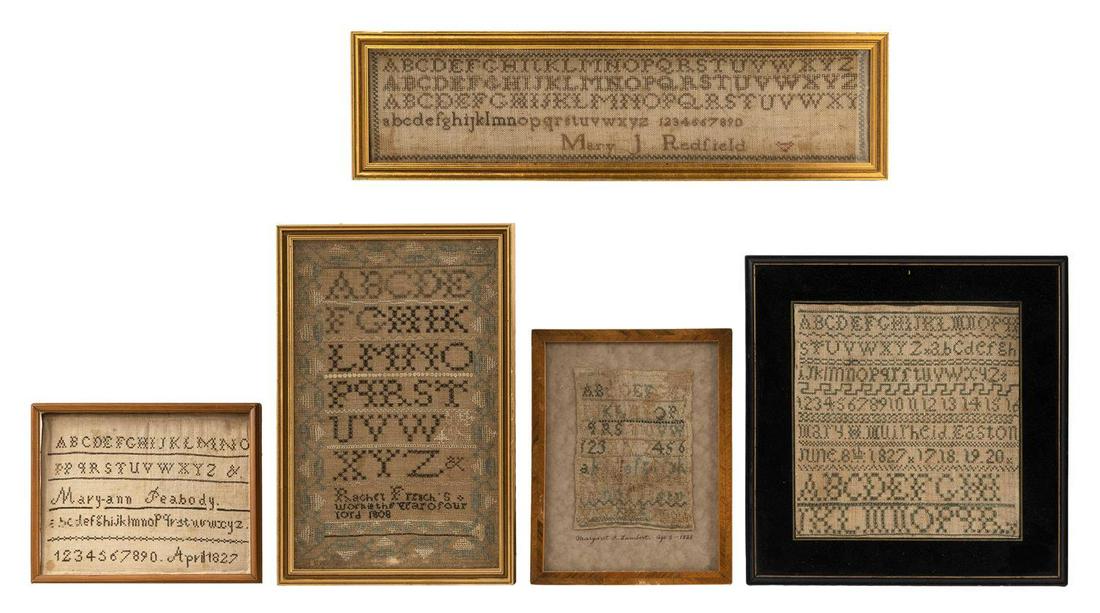 ABCDEFGHIJKLMNOPQRSTUVWXYZ
ABCDEFGHIJKLMNOPQRSTUVWXYZ
ABCDEFGHIJKLMNOPQRSTUVWXY
abcdefghijklmnopqrstuvwxyz 1234567890
Mary J Redfield
ABCDEFGHIJKLMNO
PPQRSTUVWXYZ &.
Mary-ann Peabody.
abcdefghijklmnopqrstuvwxyz.
1234567890. April 1827
ABCDE
FGHIK
LMNO
PQRST
UVW
XYZ &
Rachel French'S
work in the Year of our
lord 1808
AB DEF
KL NOP
QRS VW
123 456
Margaret A. Lambert. Age 8 - 1823
ABCDEFGHIJKLMNOPQR
STUVWXYZ abcdefgh
ijklmnopqrstuvwxyz
1234567891011 12 13 14 15 16
Mary Muirheid Easton
JUNE 8th 1827 17 18 19 20
ABCDEFGHI
JKLMNOPQR